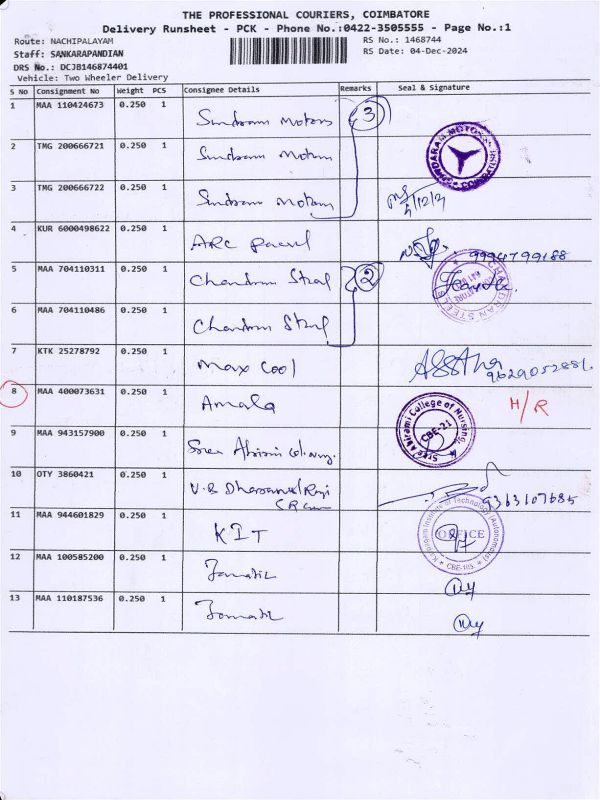 THE PROFESSIONAL COURIERS, COIMBATORE
Delivery Runsheet - PCK - Phone No.:0422-3505555 - Page No.:1
Route: NACHIPALAYAM
RS No.: 1468744
Staff: SANKARAPANDIAN
RS Date: 04-Dec-2024
DRS No.: DCJB146874401
Vehicle: Two Wheeler Delivery
S No Consignment No Weight PCS Consignee Details Remarks Seal & Signature
1 MAA 110424673 0.250 1 Sundram Motors 3
2 TMG 200666721 0.250 1 Sundram Motors
SUNDARAM MOTORS
3 TMG 200666722 0.250 1 Sundram Motors
4 KUR 6000498622 0.250 1 ARC
5 MAA 704110311 0.250 1 Chandran Steel 2
CHANDRAN STEELS
6 MAA 704110486 0.250 1 Chandran Steel
7 KTK 25278792 0.250 1 Max Cool
8 MAA 400073631 0.250 1 Amala H/R
9 MAA 943157900 0.250 1 Sree Abirami
Sree Abirami College of Nursing, CBE-21
10 OTY 3860421 0.250 1 V.B 9363107685
11 MAA 944601829 0.250 1 KIT
Institute of Technology (Autonomous) OFFICE CBE-105
12 MAA 100585200 0.250 1
13 MAA 110187536 0.250 1